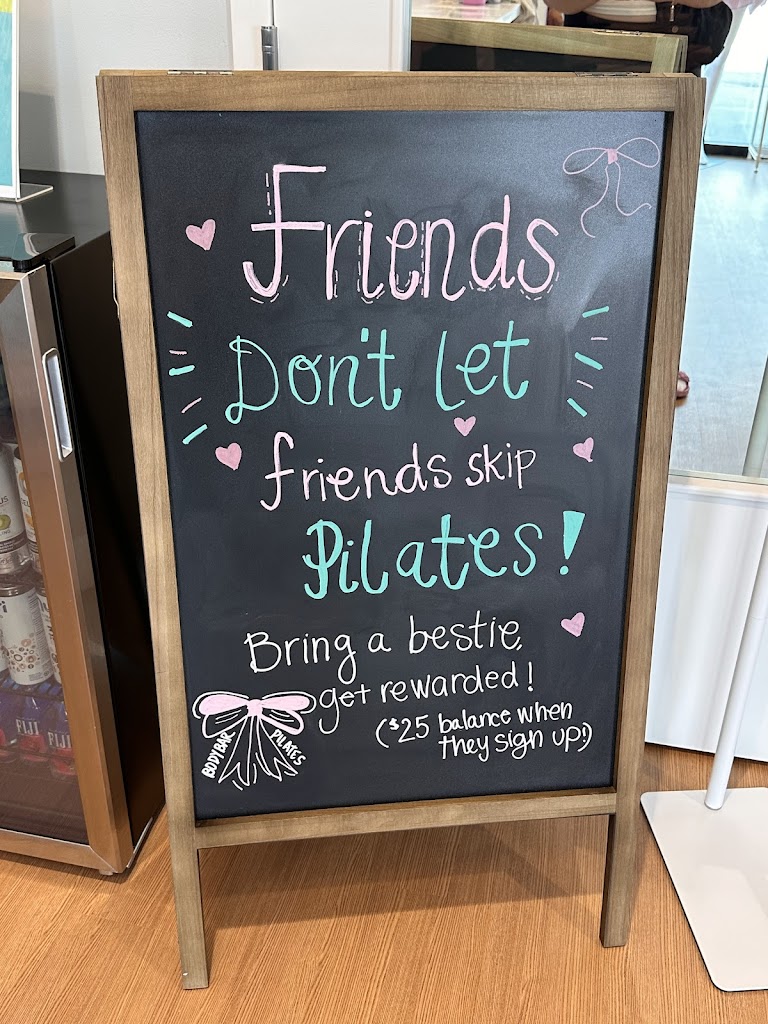 Friends
Don't let
friends skip
Pilates!
Bring a bestie,
get rewarded!
($25 balance when
they sign up!)
BODYBAR
PILATES
FIJI
FIJI